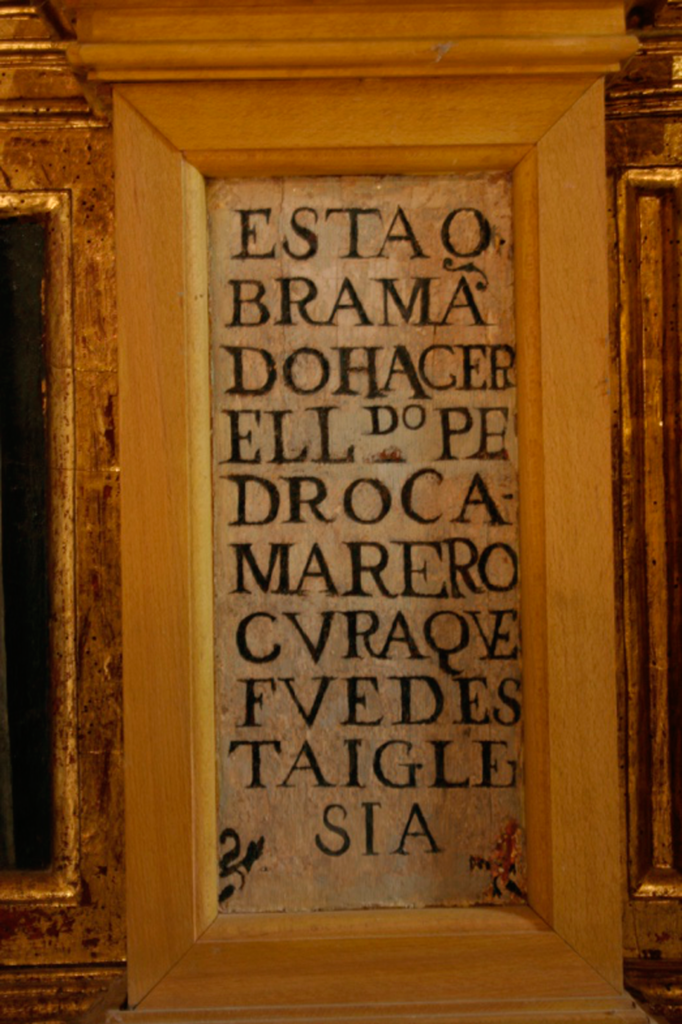 ESTA O
BRA MÃ
DO HACER
EL L.DO PE
DRO CA-
MARERO
CVRA QVE
FVE DES
TA IGLE
SIA